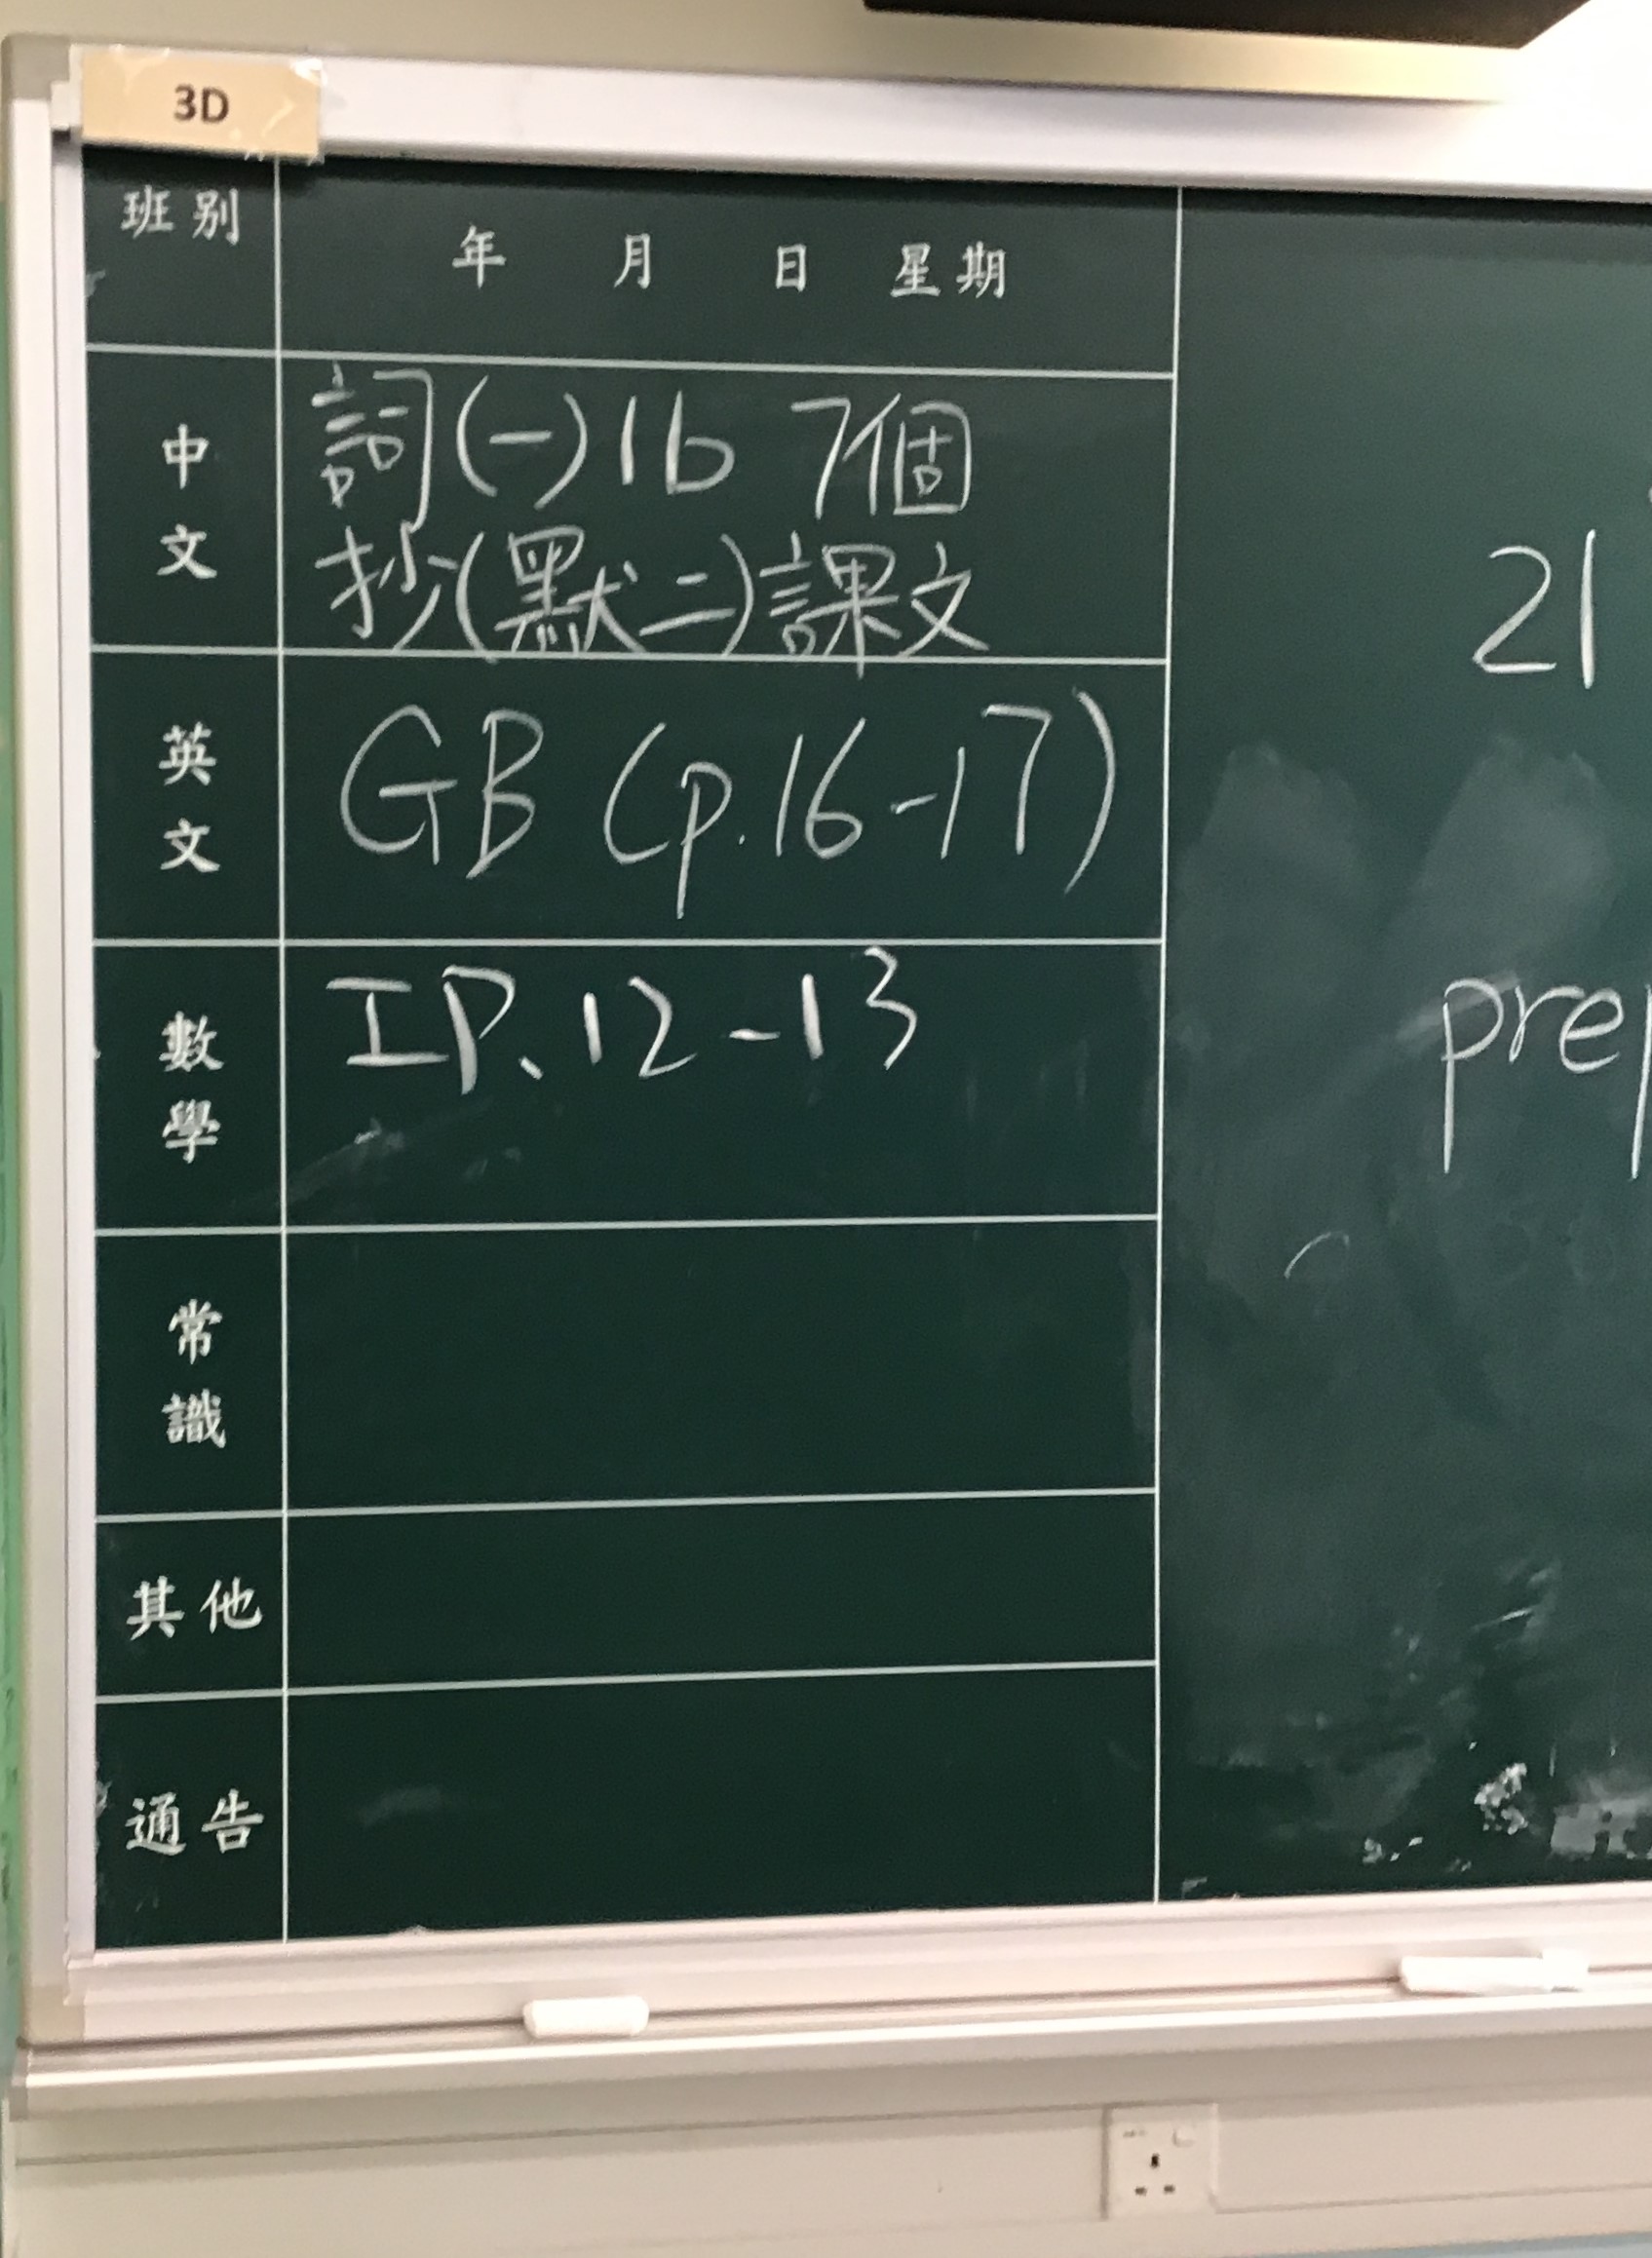 3D
班別
年 月 日 星期
中文
詞(一)1b 7個
抄(默二)課文
英文
GB (p.16-17)
數學
IP. 12-13
常識
其他
通告
21
prep